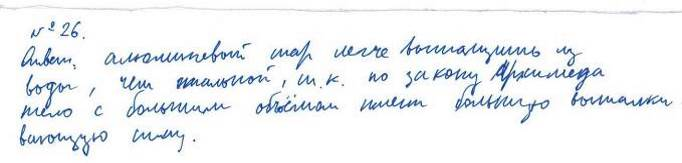 № 26.
Ответ: алюминевый шар легче вытащить из
воды, чем стальной, т.к. по закону Архимеда
тело с большим объёмом имеет большую выталки
вающую силу.